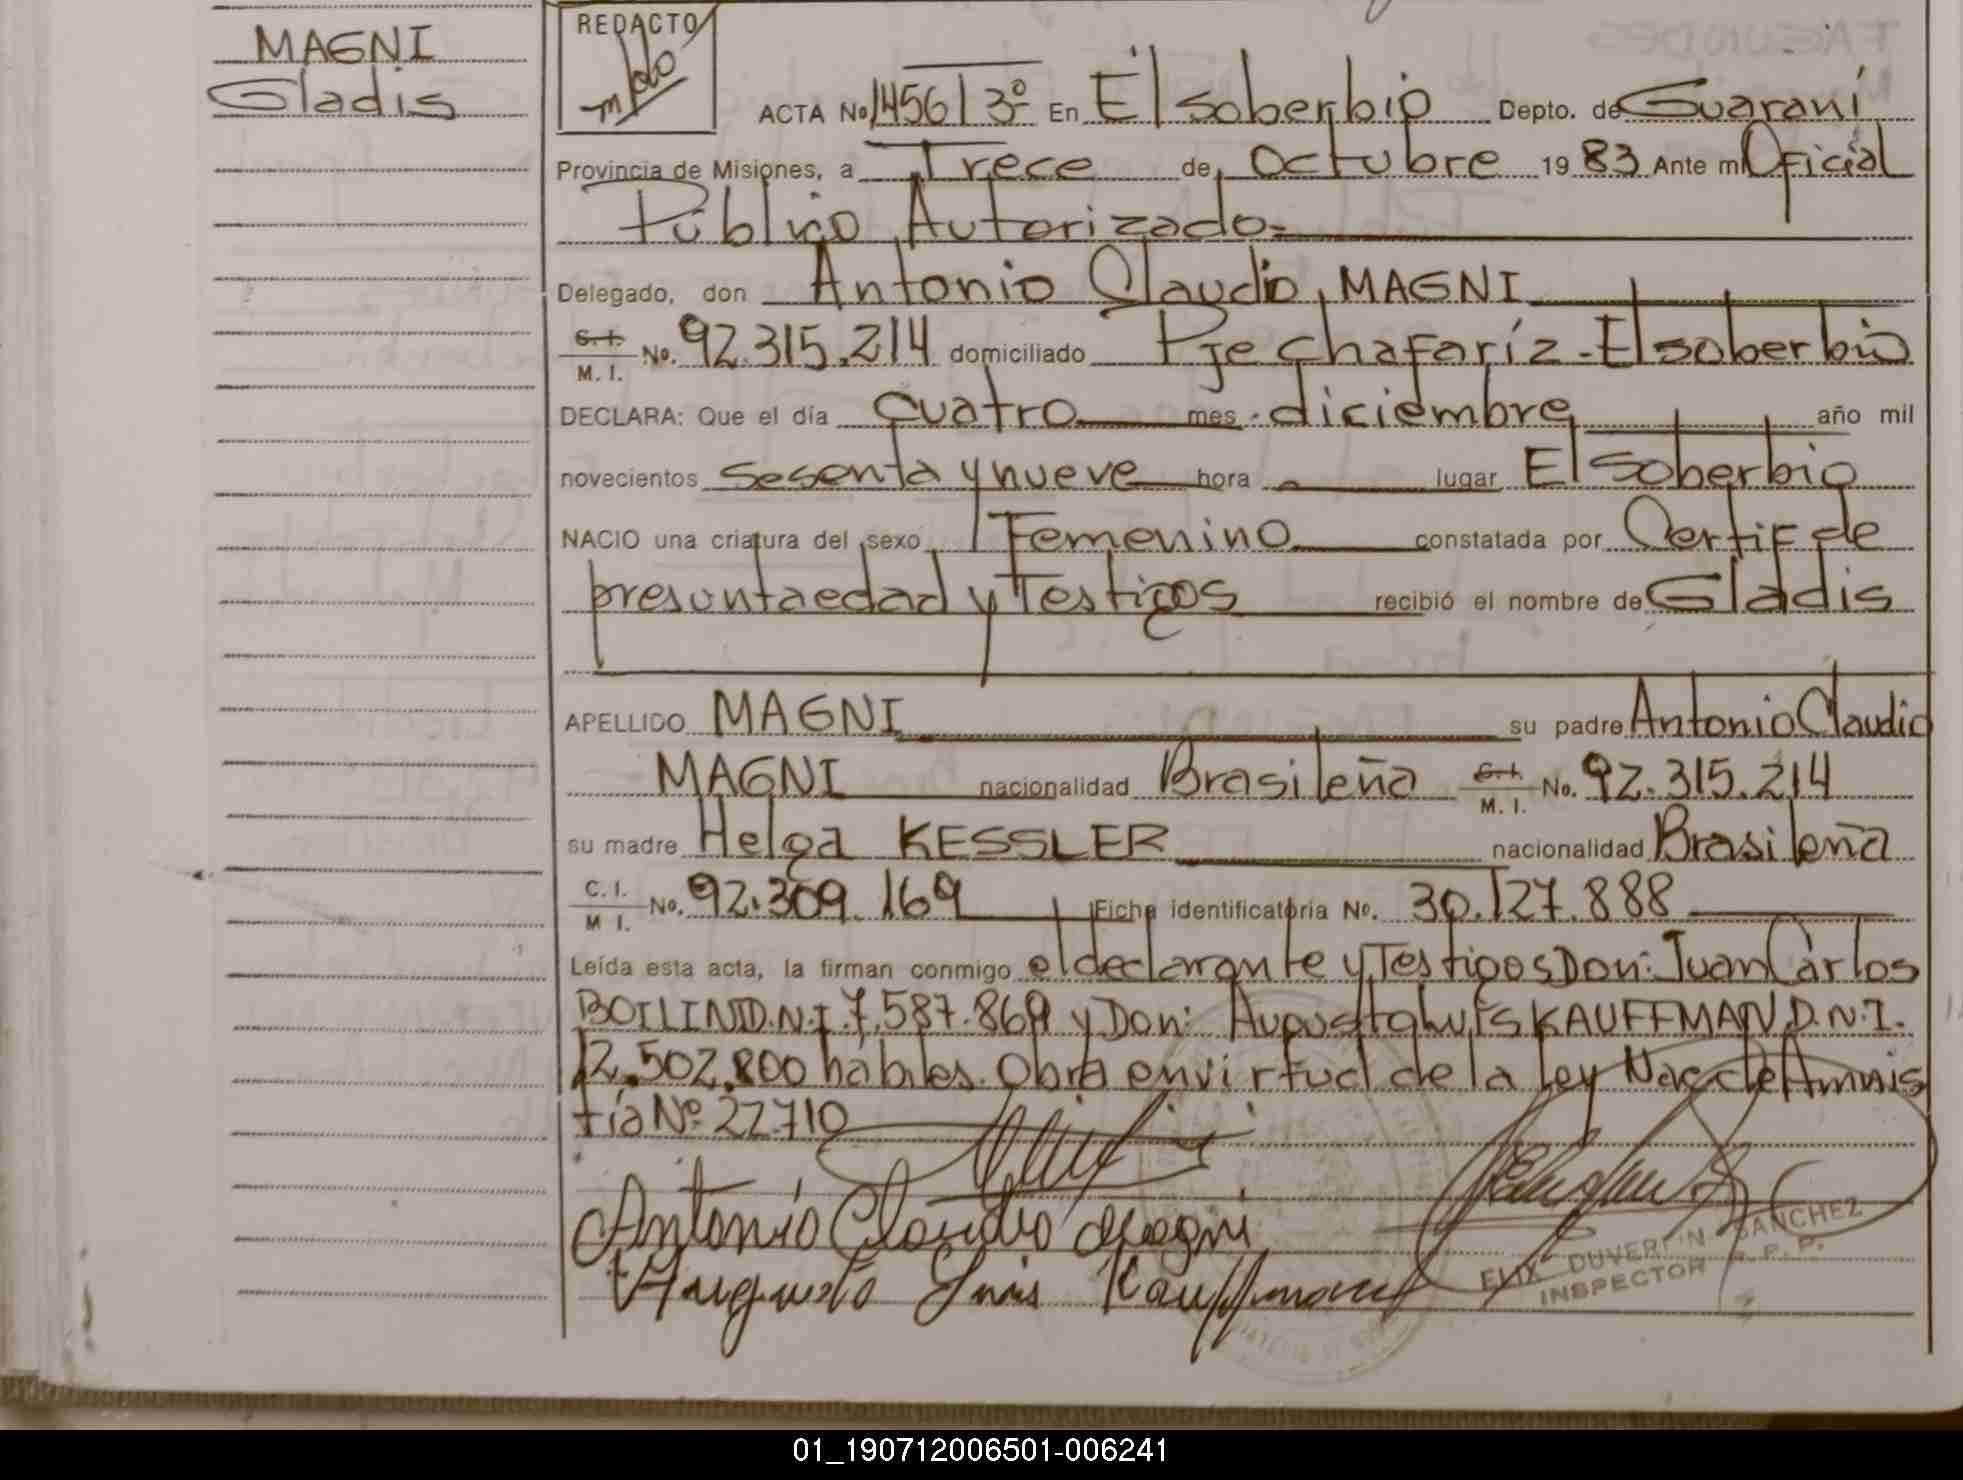 MAGNI
Gladis
REDACTO
ACTA No 1456/3º En El soberbio Depto. de Guaraní
Provincia de Misiones, a Trece de Octubre 19 83 Ante mi Oficial
Público Autorizado=
Delegado, don Antonio Claudio, MAGNI
C.I. M. I. No. 92.315.214 domiciliado Pje chafaríz - El soberbio
DECLARA: Que el día cuatro mes diciembre año mil
novecientos sesenta y nueve hora lugar El soberbio
NACIO una criatura del sexo Femenino constatada por Certif de
presuntaedad y Testigos recibió el nombre de Gladis
APELLIDO MAGNI su padre Antonio Claudio
MAGNI nacionalidad Brasileña C.I. M. I. No. 92.315.214
su madre Helga KESSLER nacionalidad Brasileña
C. I. M I. No. 92.309.169 Ficha identificatoria No. 30.127.888
Leída esta acta, la firman conmigo el declarante y Testigos Don: Juan Carlos
BOILINI D.N.I 7.587.869 y Don: Augusto Luis KAUFFMAN D.N.I.
12.502.800 habiles. Obra en virtud de la Ley Nac de Amnis
tía Nº 22710
Antonio Claudio Magni
Augusto Luis Kauffmann
FELIX DUVERLIN SANCHEZ
INSPECTOR R. P. P.
01_190712006501-006241